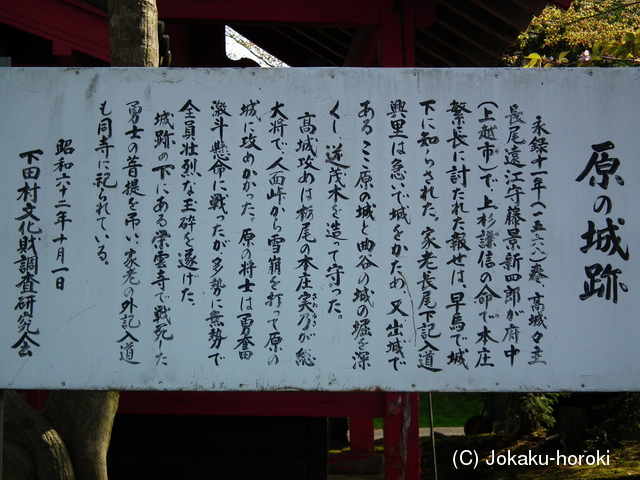 原の城跡
永録十一年(一五六八)春、高城々主
長尾遠江守藤景新四郎が府中
(上越市)で上杉謙信の命で本庄
繁長に討たれた報せは、早馬で城
下に知らされた。家老長尾下記入道
興里は急いで城をかため、又出城で
ある、この原の城と曲谷の城の堀を深
くし、逆茂木を造って守った。
高城攻めは栃尾の本庄実乃が総
大将で、人面峠から雪崩を打って原の
城に攻めかかった。原の将士は勇奮
激斗懸命に戦ったが多勢に無勢で
全員壮烈な玉砕を遂げた。
城跡の下にある栄雲寺で戦死した
勇士の菩提を弔い、家老の外記入道
も同寺に祀られている。
昭和六十二年十月一日
下田村文化財調査研究会
(C) Jokaku-horoki